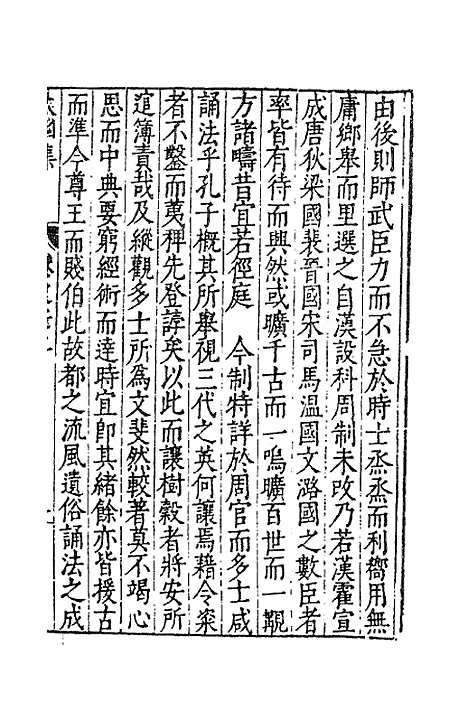 由後則師武臣力而不急於時士烝烝而利嚮用無
庸鄉舉而里選之自漢設科周制未改乃若漢霍宣
成唐狄梁國裴晉國宋司馬溫國文潞國之數臣者
率皆有待而興然或曠千古而一鳴曠百世而一覯
方諸疇昔宜若徑庭　今制特詳於周官而多士咸
誦法乎孔子概其所舉視三代之英何讓焉藉令粢
者不鑿而荑稗先登諄矣以此而讓樹穀者將安所
逭簿責哉及縱觀多士所為文斐然較著莫不竭心
思而中典要窮經術而達時宜卽其緒餘亦皆援古
而準今尊王而賤伯此故都之流風遺俗誦法之成
函集